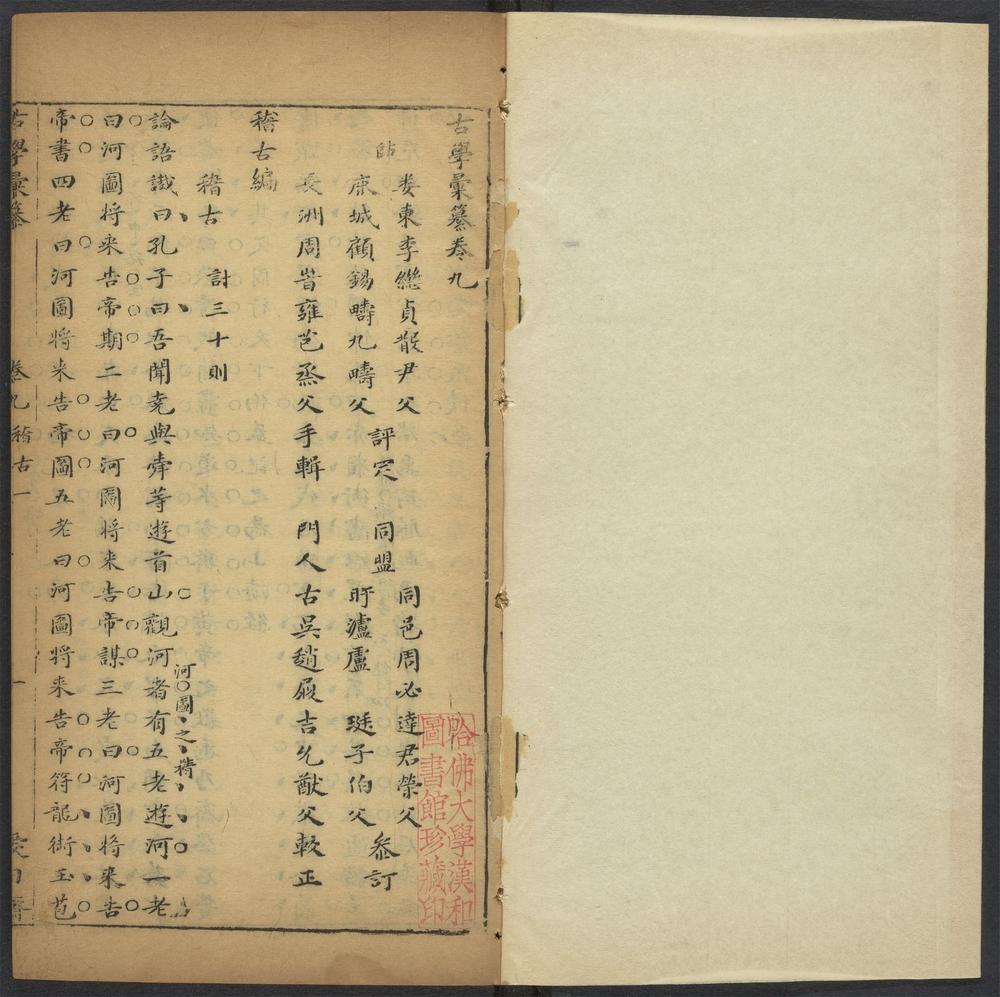 古學彙纂卷九
婁東李繼貞散尹父
鹿城顧錫疇九疇父
評定
同盟
同邑周必達君榮父
盱瀘盧 珽子伯父
叅訂
長洲周㫮雍芑烝父手輯 門人古吳趙屐吉允猷父較正
稽古編
稽古 計三十則
論語讖曰孔子曰吾聞堯與舜等遊首山觀河者有五老遊河一老
河圖之精
曰河圖将来告帝期二老曰河圖将来告帝謀三老曰河圖将来告
帝書四老曰河圖将来告帝圖五老曰河圖将来告帝符龍銜玉苞
古學彙纂
卷九 稽古一
一
哈佛大學漢和
圖書館珍藏印